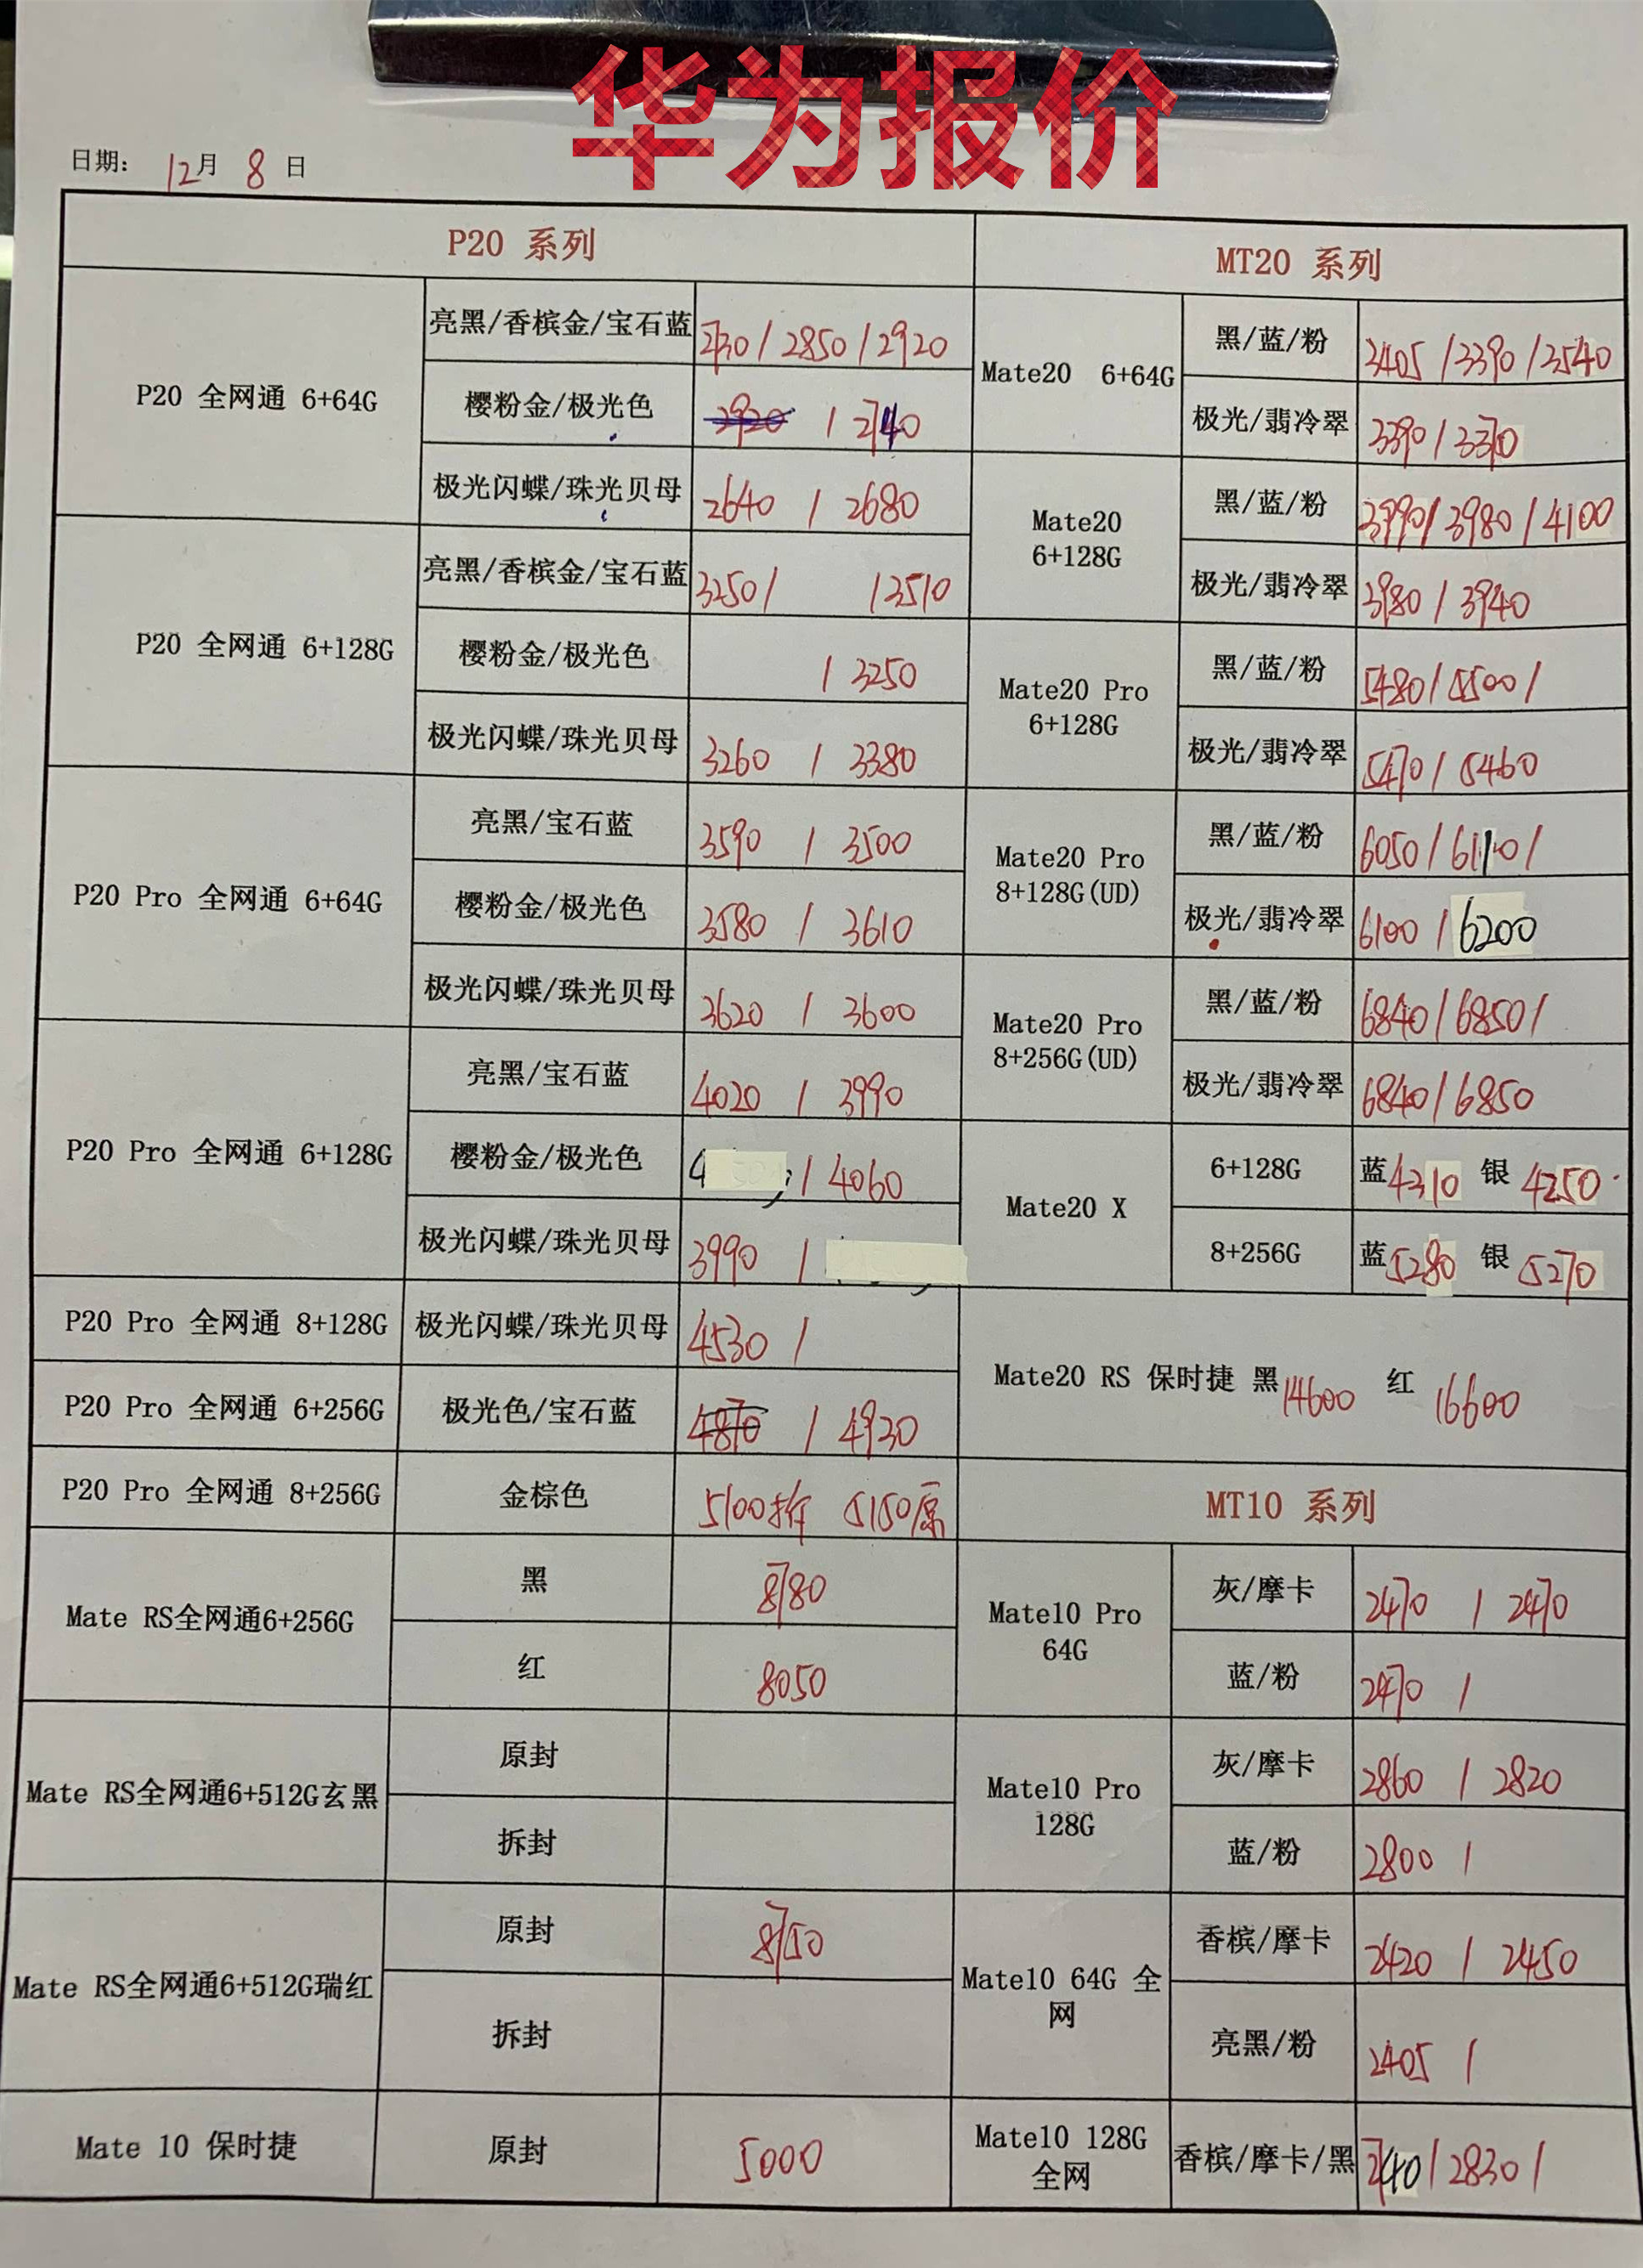 华为报价
日期： 12月 8 日
P20 系列
P20 全网通 6+64G
亮黑/香槟金/宝石蓝 2730 / 2850 / 2920
樱粉金/极光色 / 2740
极光闪蝶/珠光贝母 2640 / 2680
P20 全网通 6+128G
亮黑/香槟金/宝石蓝 3250 / / 3510
樱粉金/极光色 / 3250
极光闪蝶/珠光贝母 3260 / 3380
P20 Pro 全网通 6+64G
亮黑/宝石蓝 3590 / 3500
樱粉金/极光色 3580 / 3610
极光闪蝶/珠光贝母 3620 / 3600
P20 Pro 全网通 6+128G
亮黑/宝石蓝 4020 / 3990
樱粉金/极光色 / 4060
极光闪蝶/珠光贝母 3990 /
P20 Pro 全网通 8+128G 极光闪蝶/珠光贝母 4530 /
P20 Pro 全网通 6+256G 极光色/宝石蓝 4870 / 4930
P20 Pro 全网通 8+256G 金棕色 5100拆 5150原
Mate RS全网通6+256G
黑 8780
红 8050
Mate RS全网通6+512G玄黑
原封
拆封
Mate RS全网通6+512G瑞红
原封 8750
拆封
Mate 10 保时捷 原封 5000
MT20 系列
Mate20 6+64G
黑/蓝/粉 3405 / 3390 / 3540
极光/翡冷翠 3390 / 3370
Mate20
6+128G
黑/蓝/粉 3990 / 3980 / 4100
极光/翡冷翠 3980 / 3940
Mate20 Pro
6+128G
黑/蓝/粉 5480 / 5500 /
极光/翡冷翠 5470 / 5460
Mate20 Pro
8+128G(UD)
黑/蓝/粉 6050 / /
极光/翡冷翠 6100 / 6200
Mate20 Pro
8+256G(UD)
黑/蓝/粉 6840 / 6850 /
极光/翡冷翠 6840 / 6850
Mate20 X
6+128G 蓝4310 银 4250
8+256G 蓝5280 银 5270
Mate20 RS 保时捷 黑14600 红 16600
MT10 系列
Mate10 Pro
64G
灰/摩卡 2470 / 2470
蓝/粉 2470 /
Mate10 Pro
128G
灰/摩卡 2860 / 2820
蓝/粉 2800 /
Mate10 64G 全
网
香槟/摩卡 2420 / 2450
亮黑/粉 2405 /
Mate10 128G
全网
香槟/摩卡/黑 2740 / 2830 /